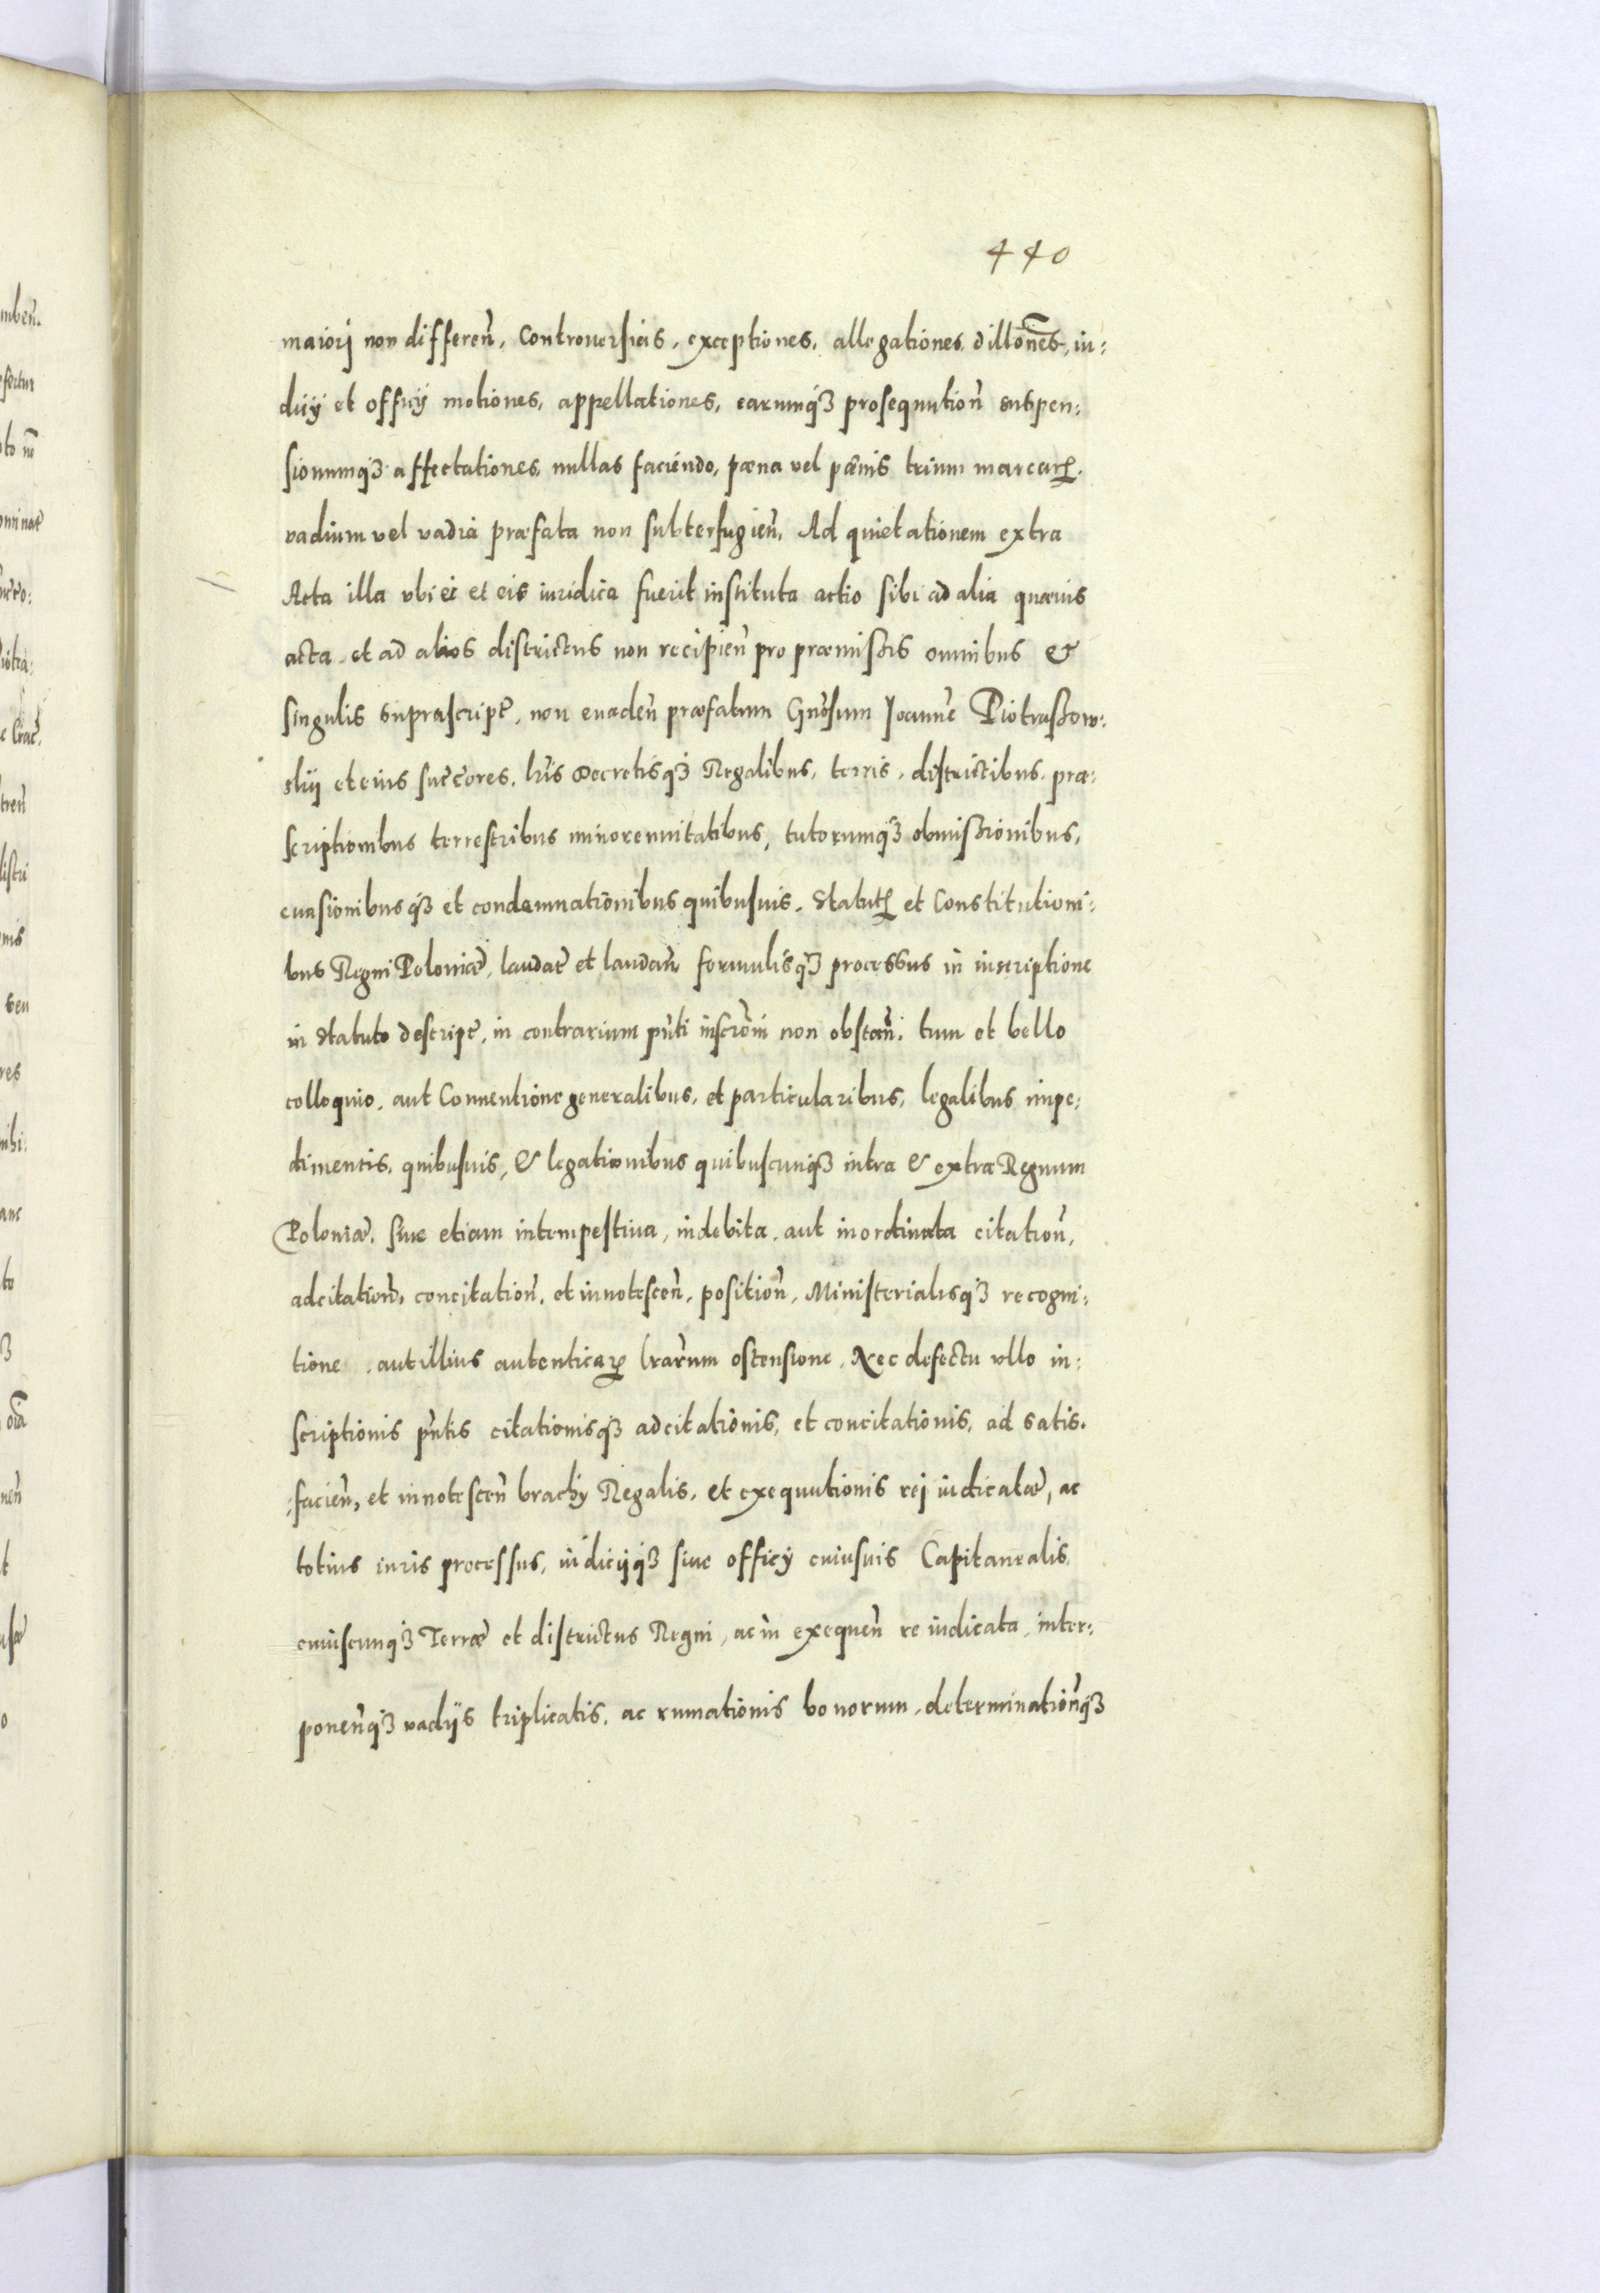 440
maiorj non differen̄, Controuersias, exceptiones, allegationes dillōnes, iu:
dicij et officij motiones, appellationes, earumqꝫ prosequution̄ suspen:
sionumqꝫ affectationes nullas faciendo, pœna vel pœnis trium marcarꝶ.
vadium vel vadia præfata non subterfugien̄, Ad quietationem extra
Acta illa vbi ei et eis iuridica fuerit instituta actio sibi ad alia quævis
acta et ad alios districtus non recipien̄ pro præmissis omnibus &
singulis suprascript̄, non euaden̄ præfatum Gn̄osum Joannē Piotrassow:
skij et eius succ̄ores, lr̄is Decretisqꝫ Regalibus, terris, districtibus, præ:
scriptionibus terrestribus minorennitatibus, tutorumqꝫ obmissionibus,
euasionibusqꝫ et condemnationibus quibusuis. Statutꝶ et Constitutioni:
bus Regni Poloniæ, laudat̄ et laudan̄ formulisqꝫ processus in inscriptione
in Statuto descript̄, in contrarium pn̄ti inscrōni non obstan̄, tum et bello
colloquio, aut Conuentione generalibus, et particularibus, legalibus impe:
dimentis, quibusuis, & legationibus quibuscunqꝫ intra & extra Regnum
Poloniæ, siue etiam intempestiua, indebita, aut inordinata citation̄,
adcitation̄, concitation̄, et innotescen̄, position̄, Ministerialisqꝫ recogni:
tione, aut illius autenticarꝶ lrārum ostensione, Nec defectu vllo in:
scriptionis pn̄tis citationisqꝫ adcitationis, et concitationis, ad satis:
:facien̄, et innotescen̄ brachij Regalis, et exequutionis rej iudicatæ, ac
totius iuris processus, iudicijqꝫ siue officij cuiusuis Capitanealis
cuiuscunqꝫ Terræ et districtus Regni, ac in exequen̄ re iudicata, inter:
ponen̄qꝫ vadijs triplicatis, ac rumationis bonorum, determination̄qꝫ